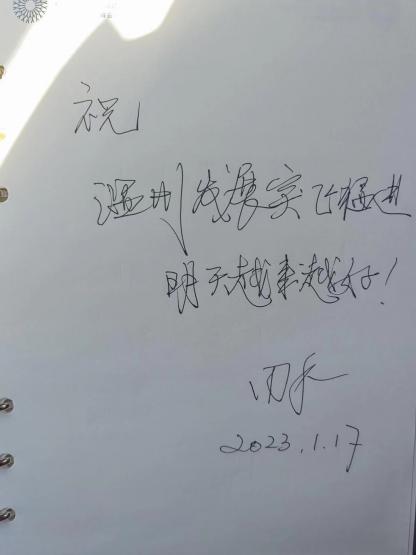 祝
温州发展突飞猛进
明天越来越好!
2023.1.17